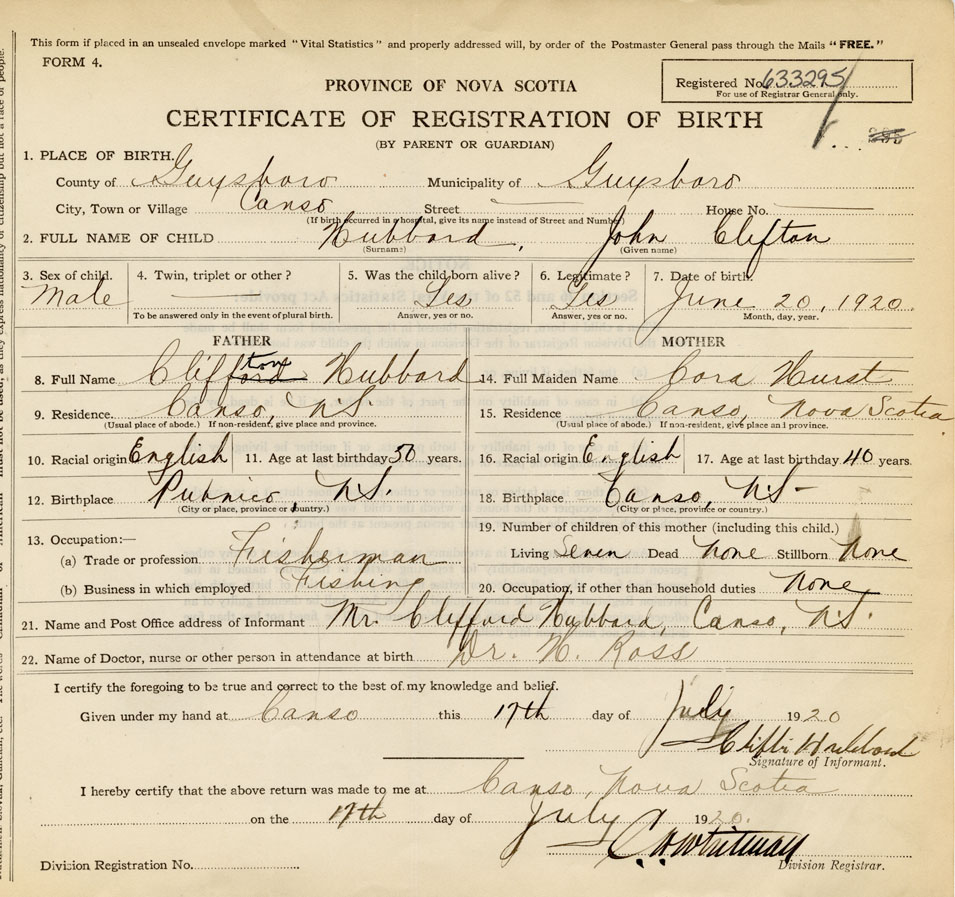 This form if placed in an unsealed envelope marked "Vital Statistics" and properly addressed will, by order of the Postmaster General pass through the Mails "FREE."
FORM 4.
Registered No. 633295
For use of Registrar General only.
PROVINCE OF NOVA SCOTIA
CERTIFICATE OF REGISTRATION OF BIRTH
(BY PARENT OR GUARDIAN)
1. PLACE OF BIRTH.
County of Guysboro Municipality of Guysboro
City, Town or Village Canso Street House No.
(If birth occurred in a hospital, give its name instead of Street and Number)
2. FULL NAME OF CHILD Hubbard, John Clifton
(Surname) (Given name)
3. Sex of child. 4. Twin, triplet or other? 5. Was the child born alive? 6. Legitimate? 7. Date of birth.
Male Yes Yes June 20, 1920
To be answered only in the event of plural birth. Answer, yes or no. Answer, yes or no. Month, day, year.
FATHER MOTHER
8. Full Name Clifton Hubbard 14. Full Maiden Name Cora Hurst
9. Residence. Canso, N.S. 15. Residence Canso, Nova Scotia
(Usual place of abode.) If non-resident, give place and province. (Usual place of abode.) If non-resident, give place and province.
10. Racial origin English 11. Age at last birthday 50 years. 16. Racial origin English 17. Age at last birthday 40 years.
12. Birthplace Pubnico, N.S. 18. Birthplace Canso, N.S.
(City or place, province or country.) (City or place, province or country.)
19. Number of children of this mother (including this child.)
13. Occupation:—
(a) Trade or profession Fisherman Living Seven Dead None Stillborn None
(b) Business in which employed Fishing 20. Occupation, if other than household duties None
21. Name and Post Office address of Informant Mr. Clifford Hubbard, Canso, N.S.
22. Name of Doctor, nurse or other person in attendance at birth Dr. H. Ross
I certify the foregoing to be true and correct to the best of my knowledge and belief.
Given under my hand at Canso this 17th day of July 1920
Hubbard
Signature of Informant.
I hereby certify that the above return was made to me at Canso, Nova Scotia
on the 17th day of July 1920.
Whitman
Division Registration No. Division Registrar.